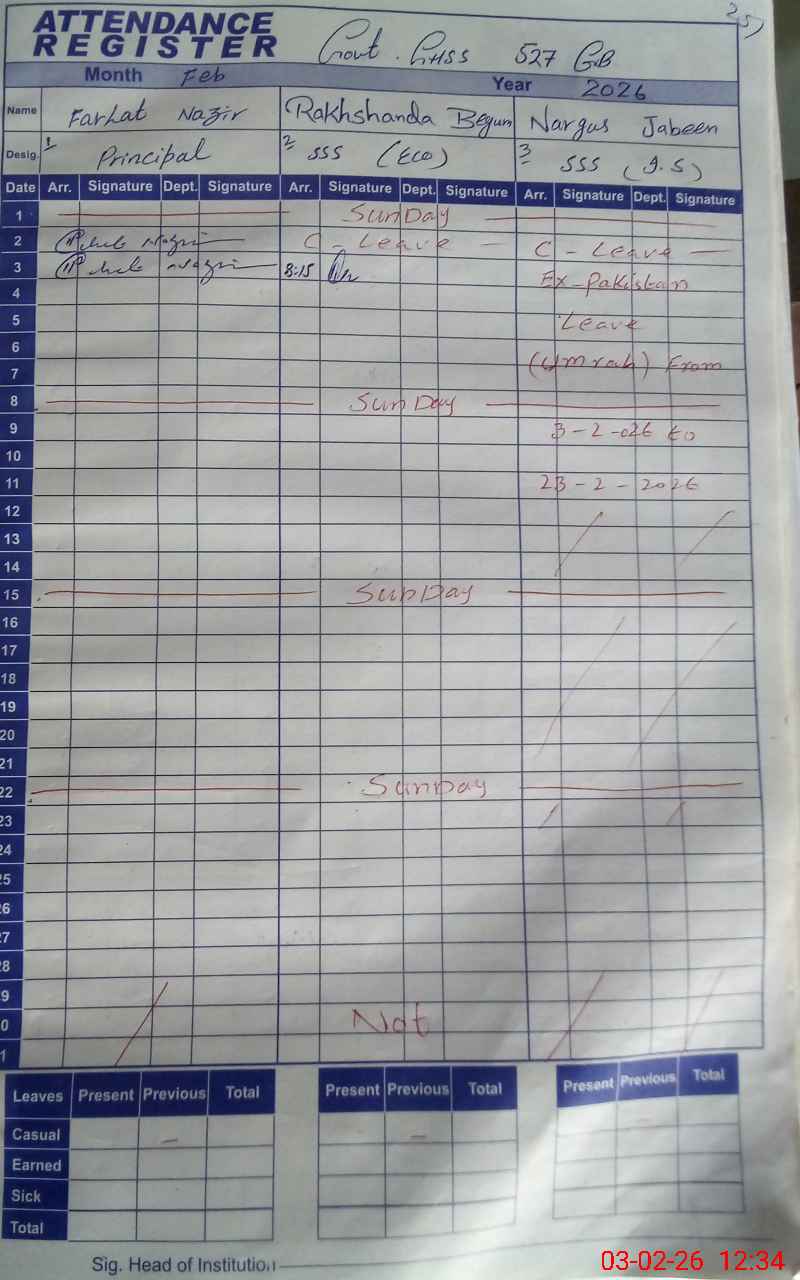 25)
ATTENDANCE
REGISTER
Govt. GHSS 527 GB
Month Feb Year 2026
Name Farhat Nazir Rakhshanda Begum Nargus Jabeen
Desig. 1 Principal 2 SSS (Eco) 3 SSS (I.S)
Date Arr. Signature Dept. Signature Arr. Signature Dept. Signature Arr. Signature Dept. Signature
1 SunDay
2 C-Leave C-Leave
3 8:15 Ex-Pakistan
4
5 Leave
6
7 (Umrah) From
8 SunDay
9 3-2-026 to
10
11 23-2-2026
12
13
14
15 SunDay
16
17
18
19
20
21
22 SunDay
23
24
25
26
27
28
9
0 Not
1
Leaves Present Previous Total Present Previous Total Present Previous Total
Casual – –
Earned
Sick
Total
Sig. Head of Institution
03-02-26 12:34